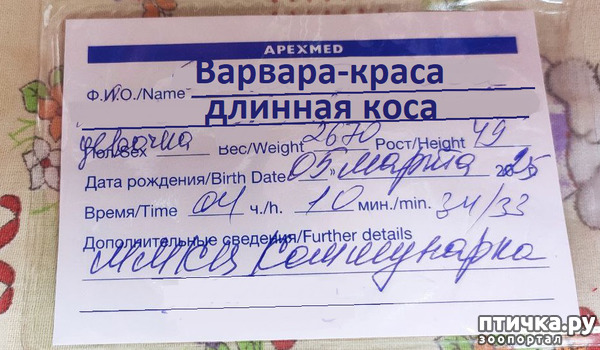 APEXMED
Варвара-краса
Ф.И.О./Name
длинная коса
девочка
Пол/Sex Вес/Weight 2670 Рост/Height 49
Дата рождения/Birth Date 05 марта 2025
Время/Time 04 ч./h. 10 мин./min. 34/33
Дополнительные сведения/Further details
ММКЦ Коммунарка
птичка.ру
зоопортал